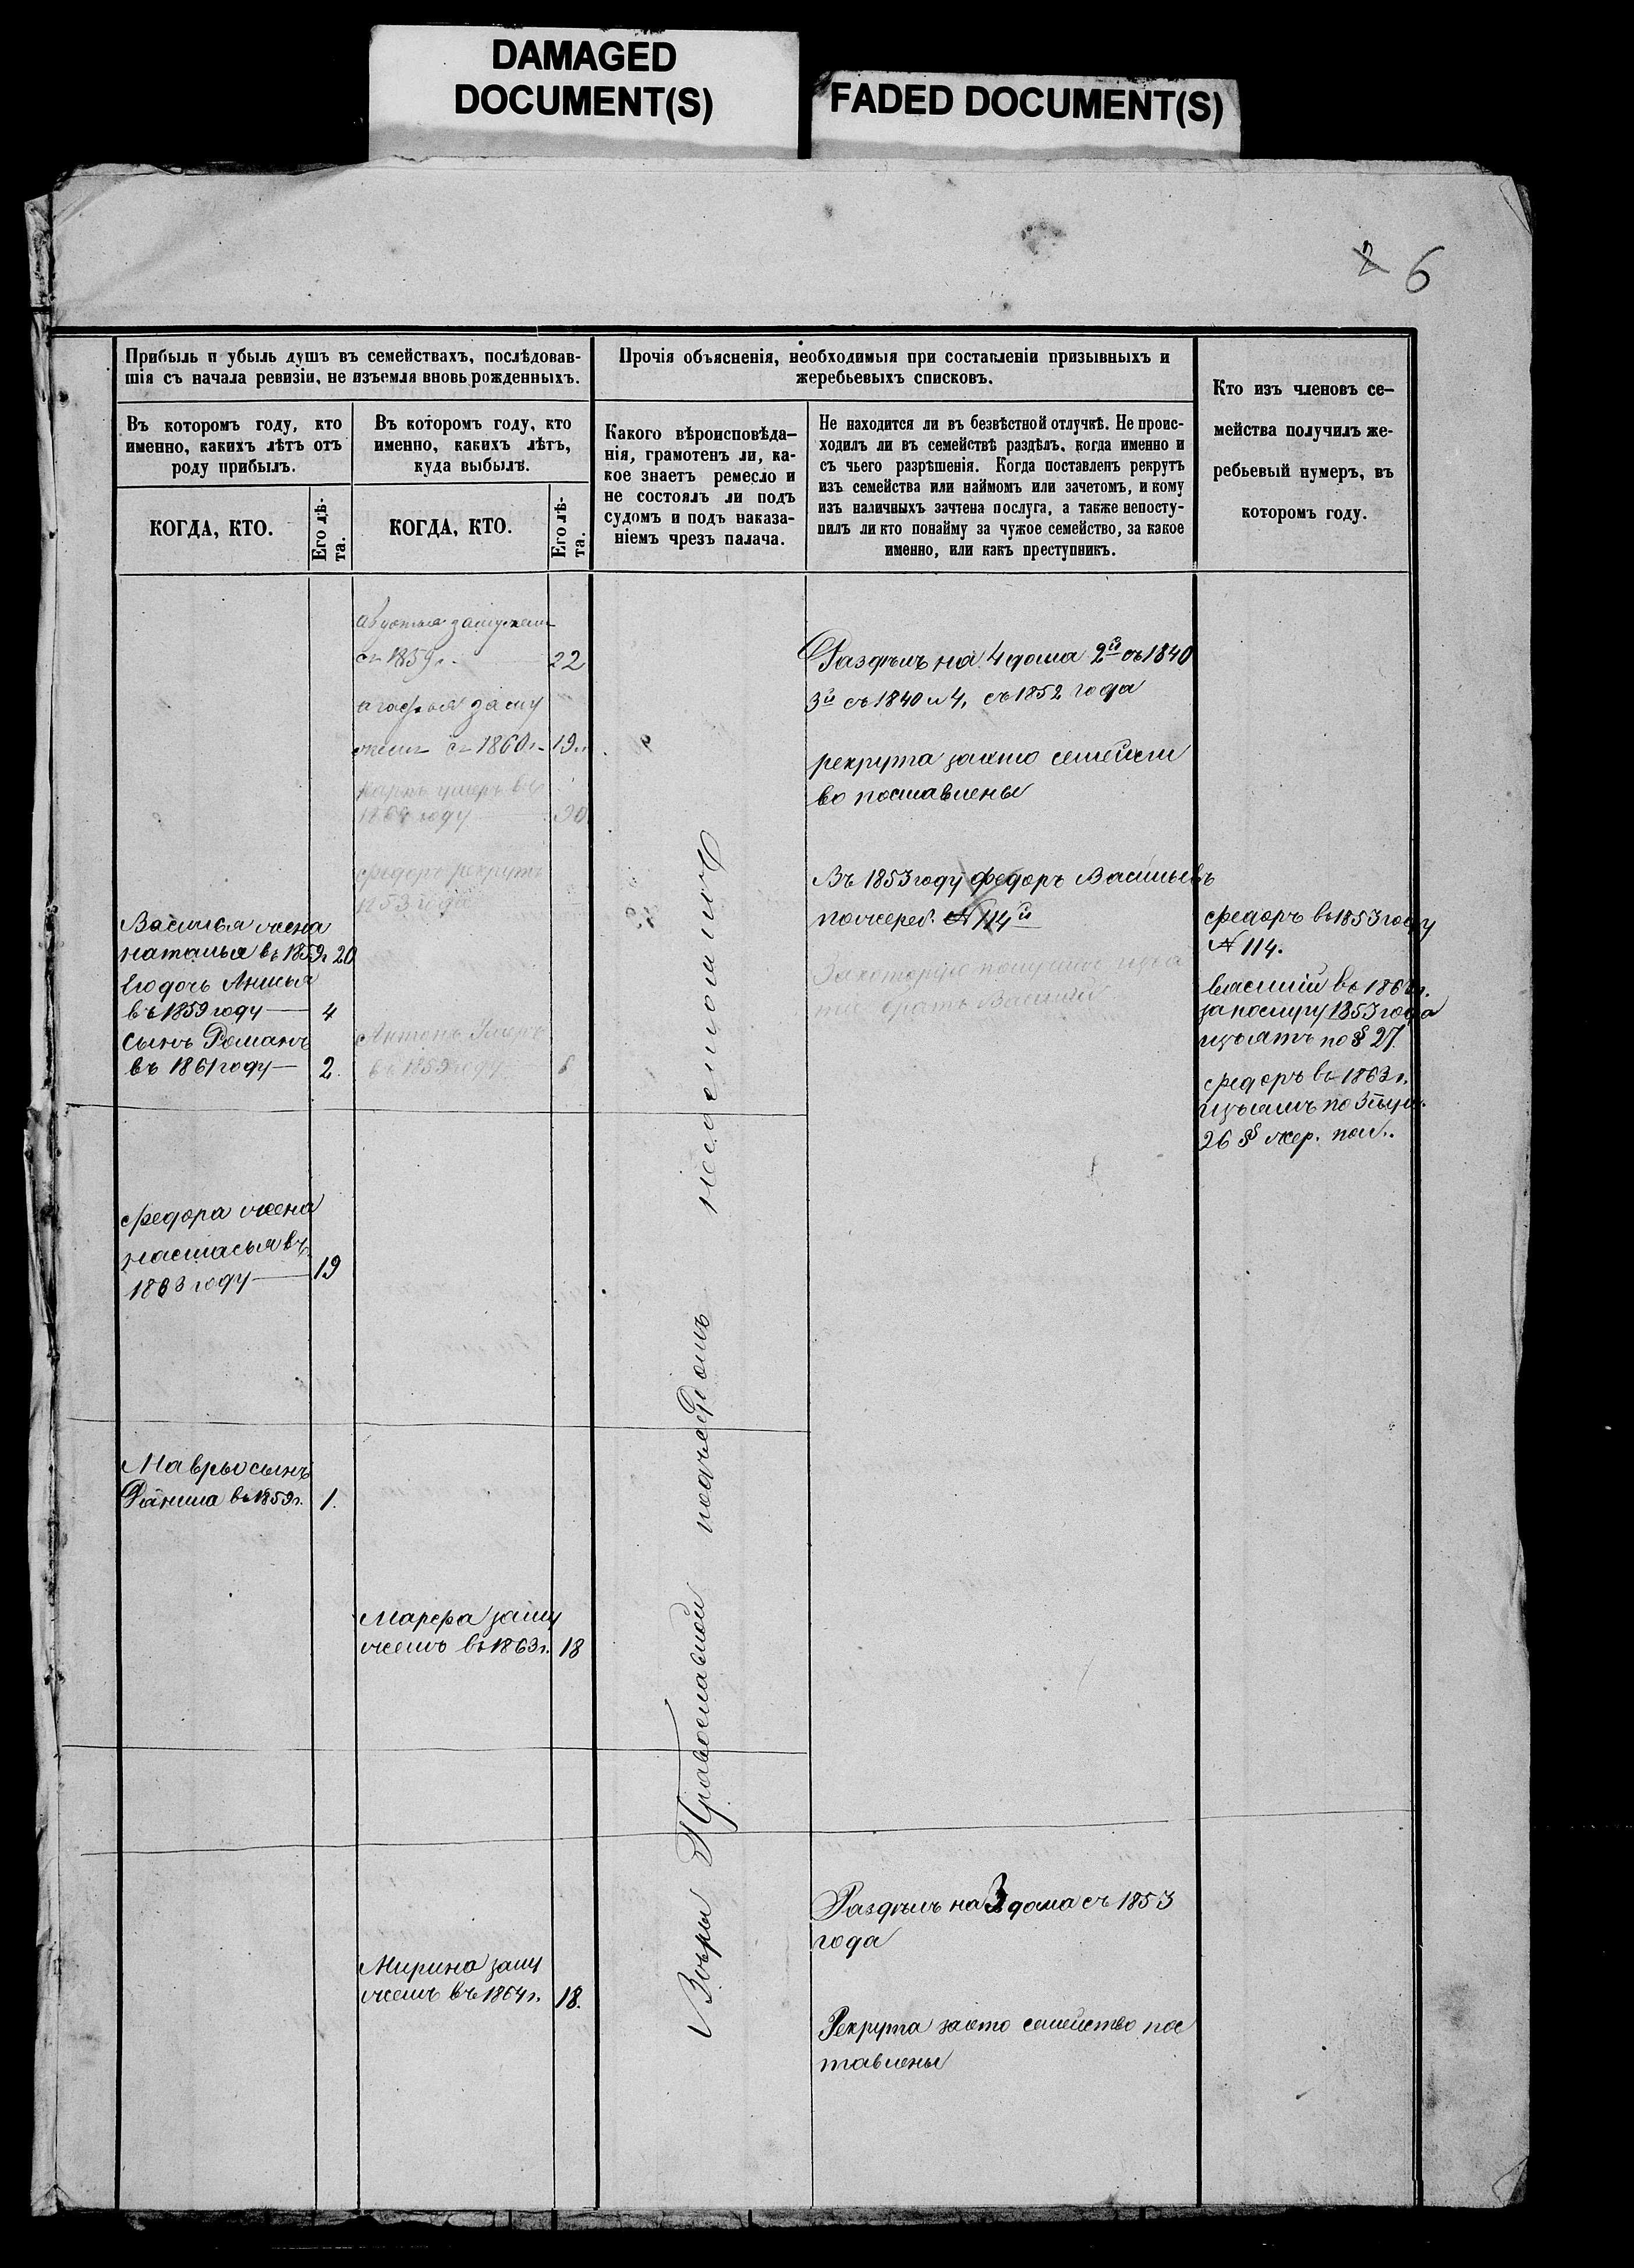 DAMAGED
DOCUMENT(S)
FADED DOCUMENT(S)
2 6
Прибыль и убыль душъ въ семействахъ, послѣдовав-
шія съ начала ревизіи, не изъемля вновь рожденныхъ.
Въ которомъ году, кто
именно, какихъ лѣтъ отъ
роду прибылъ.
КОГДА, КТО.
Его лѣ-
та.
Въ которомъ году, кто
именно, какихъ лѣтъ,
куда выбылъ.
КОГДА, КТО.
Его лѣ-
та.
Прочія объясненія, необходимыя при составленіи призывныхъ и
жеребьевыхъ списковъ.
Какого вѣроисповѣда-
нія, грамотенъ ли, ка-
кое знаетъ ремесло и
не состоялъ ли подъ
судомъ и подъ наказа-
ніемъ чрезъ палача.
Не находится ли въ безвѣстной отлучкѣ. Не проис-
ходилъ ли въ семействѣ раздѣлъ, когда именно и
съ чьего разрѣшенія. Когда поставленъ рекрутъ
изъ семейства или наймомъ или зачетомъ, и кому
изъ наличныхъ зачтена послуга, а также непосту-
пилъ ли кто понайму за чужое семейство, за какое
именно, или какъ преступникъ.
Кто изъ членовъ се-
мейства получилъ же-
ребьевый нумеръ, въ
которомъ году.
Василья жена
наталья въ 1859г 20
Егодочь Анисья
въ 1859 году 4
Сынъ Романъ
въ 1861 году 2.
Федора жена
настасья въ
1863 году 19
Мавры сынъ
въ 1859г. 1.
замужем
съ 1859г. 22
агафья заму
жем съ 1860г. 19.
умеръ въ
году 30
федоръ рекрутъ
1853 года
Антонъ Умеръ
въ 1859 году 6
Марфа заму
жемъ въ 1863г. 18
заму
жемъ въ 1864г. 18.
Вѣры Православной подъсудомъ несостоитъ
Раздѣлъ на 4 дома 2й съ 1840
3й съ 1840 и 4, съ 1852 года
рекрута заэто семейст
во поставлены
Въ 1853 году федоръ Васильевъ
пожереб. № 114й
За которую
братъ Василий
Раздѣлъ на 3 дома съ 1853
года
Рекрута заэто семейство пос
тавлены
федоръ въ 1853 году
№ 114.
василий въ
1853 года
изъятъ по § 27.
федоръ въ 1863 г.
изъятъ по 3 пун.
26 § жер. пол..